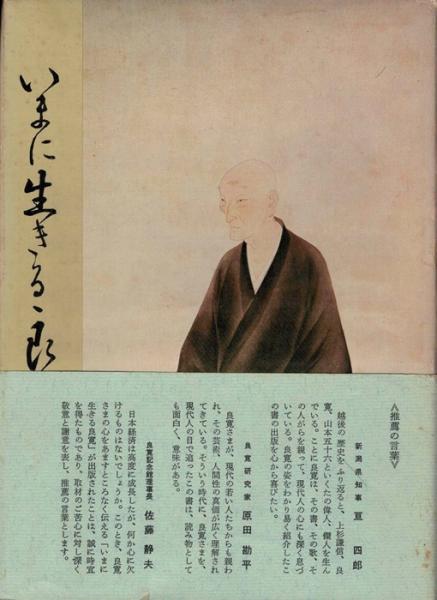 いまに生きる良
〈推薦の言葉〉
新潟県知事 亘 四郎
越後の歴史をふり返ると、上杉謙信、良
寛、山本五十六といくたの偉人、傑人を生ん
でいる。ことに良寛は、その書、その歌、そ
の人がらを親って、現代人の心にも深く息づ
いている。良寛の姿をわかり易く紹介したこ
の書の出版を心から喜びたい。
良寛研究家 原田 勘平
良寛さまが、現代の若い人たちからも親わ
れ、その芸術、人間性の真価が広く理解され
てきている。そういう時代に、良寛さまを、
現代人の目で追ったこの書は、読み物として
も面白く、意味がある。
良寛記念館理事長 佐藤 静夫
日本経済は高度に成長したが、何か心に欠
けるものはないでしょうか。このとき、良寛
さまの心をあますところなく伝える「いまに
生きる良寛」が出版されたことは、誠に時宜
を得たものであり、取材のご苦心に対し深く
敬意と謝意を表し、推薦の言葉とします。